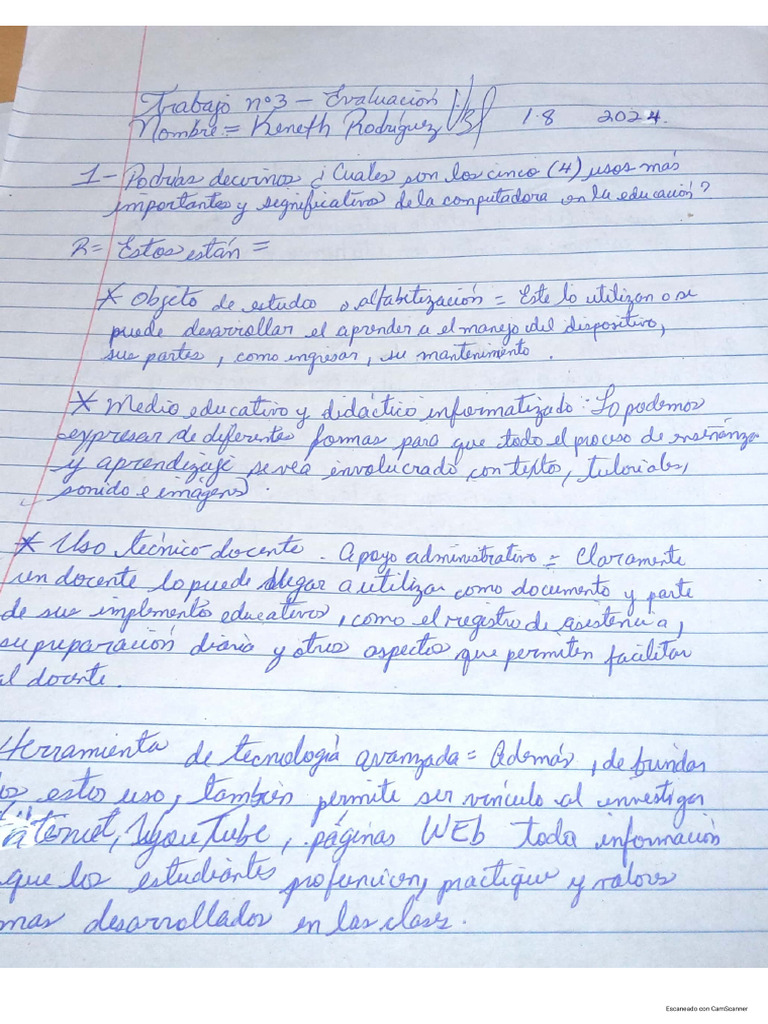 Trabajo nº3 – Evaluación
Nombre = Keneth Rodríguez 1.8 2024.
1 – Podrías decirnos ¿Cuales son los cinco (4) usos más
importantes y significativos de la computadora en la educación?
R = Estos están =
* Objeto de estudio o alfabetización = Este lo utilizan o se
puede desarrollar el aprender a el manejo del dispositivo,
sus partes, como ingresar, su mantenimento.
* Medio educativo y didáctico informatizado: Lo podemos
expresar de diferentes formas para que todo el proceso de enseñanza
y aprendizaje se vea involucrado, con textos, tutoriales,
sonido e imágenes.
* Uso técnico-docente. Apoyo administrativo = Claramente
un docente lo puede llegar a utilizar como documento y parte
de sus implementos educativos, como el registro de asistencia,
su preparación diaria y otros aspectos que permiten facilitar
al docente.
Herramienta de tecnología avanzada = Además, de brindar
los estos uso, también permite ser vínculo al investigar
internet, YouTube, páginas WEB toda información
que los estudiantes practique y valores
mas desarrollados en las clases.
Escaneado con CamScanner